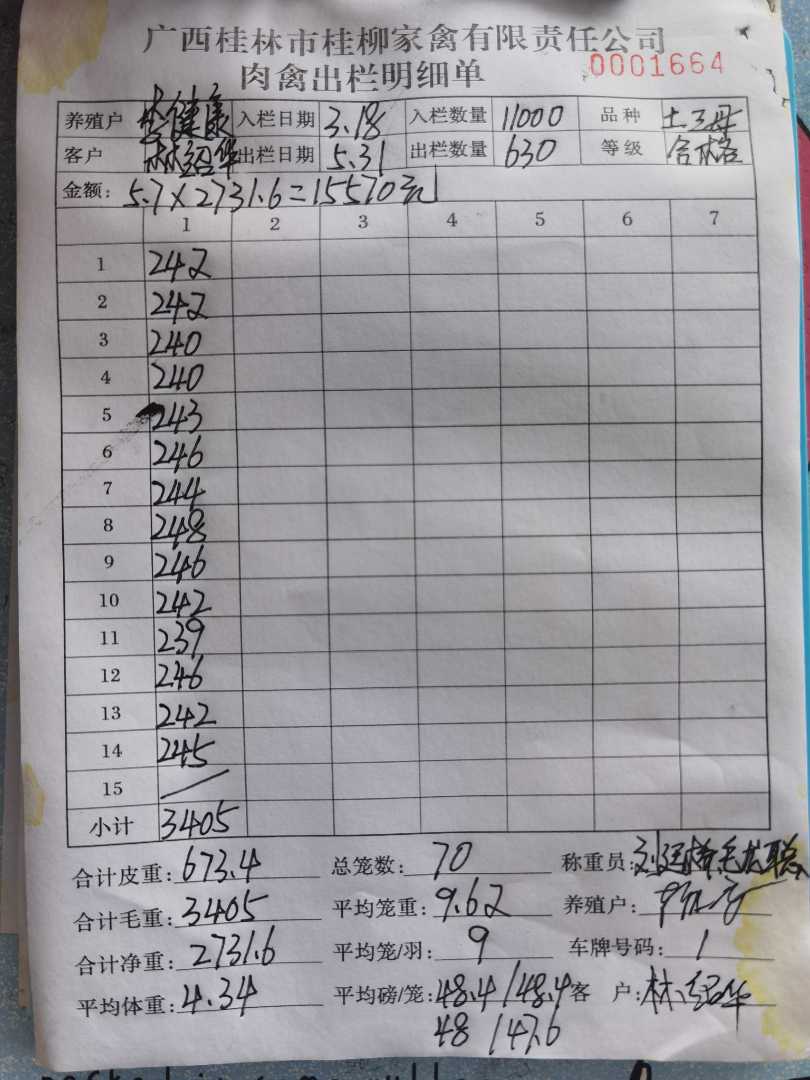 广西桂林市桂柳家禽有限责任公司
肉禽出栏明细单 0001664
养殖户 李健康 入栏日期 3.18 入栏数量 11000 品种 土三母
客户 林绍华 出栏日期 5.31 出栏数量 630 等级 合格
金额: 5.7×2731.6=15570元
1 2 3 4 5 6 7
1 242
2 242
3 240
4 240
5 243
6 246
7 244
8 248
9 246
10 242
11 239
12 246
13 242
14 245
15 /
小计 3405
合计皮重: 673.4 总笼数: 70 称重员:
合计毛重: 3405 平均笼重: 9.62 养殖户:
合计净重: 2731.6 平均笼/羽: 9 车牌号码: 1
平均体重: 4.34 平均磅/笼: 48.4/48.4 客 户: 林绍华
48/47.6